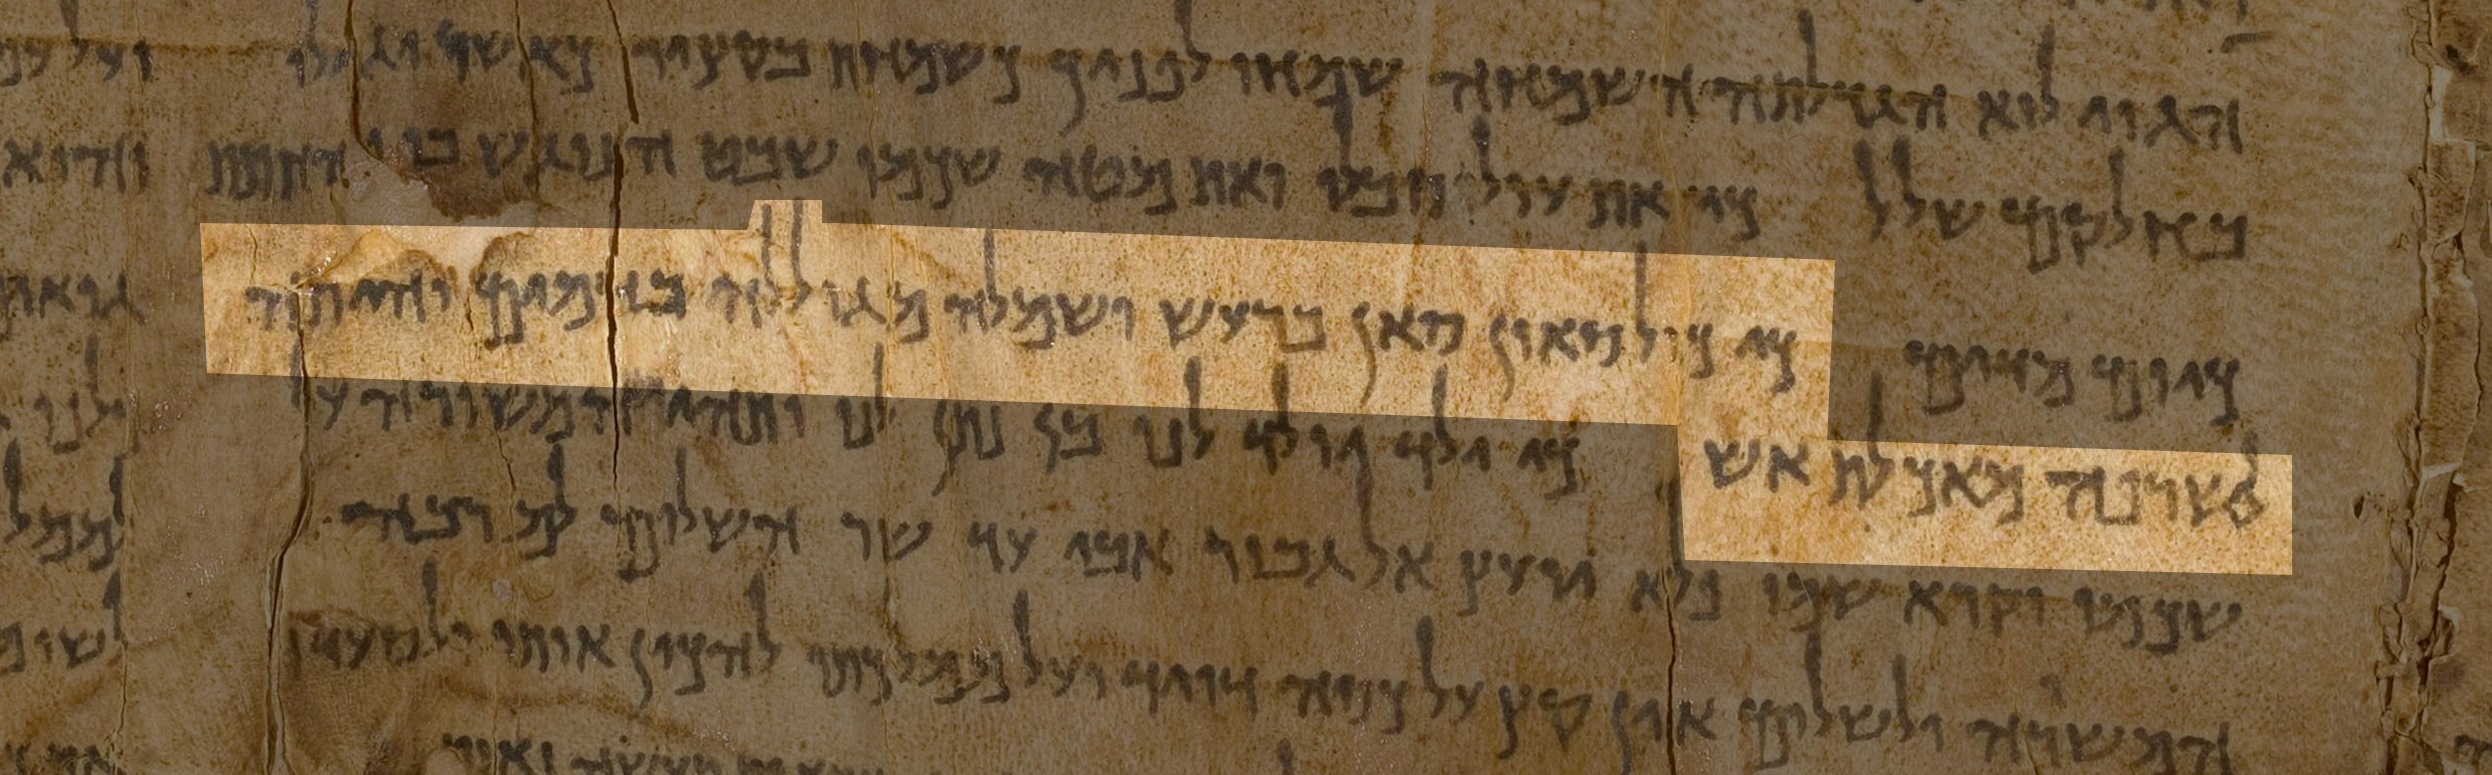 הגוי לוא הגדלתה השמחה שמחו לפניך כשמחת בקציר כאשר יגילו
בחלקם שלל כי את עול סבלו ואת מטה שכמו שבט הנוגש בו החתת
כיום מדים כי כול סאון סאן ברעש ושמלה מגוללה בדמים והיתה
לשרפה מאכלת אש כי ילד יולד לנו בן נתן לנו ותהי המשורה על
שכמו וקרא שמו פלא יועץ אל גבור אבי עד שר השלום למרבה
המשרה ולשלום אין קץ על כסה דויד ועל ממלכתו להכין אותו ולסעדו